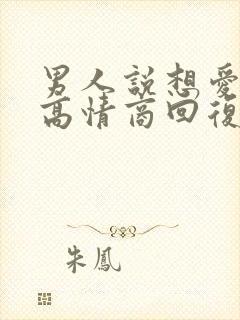 男人說想愛
高情商回復
朱鳳